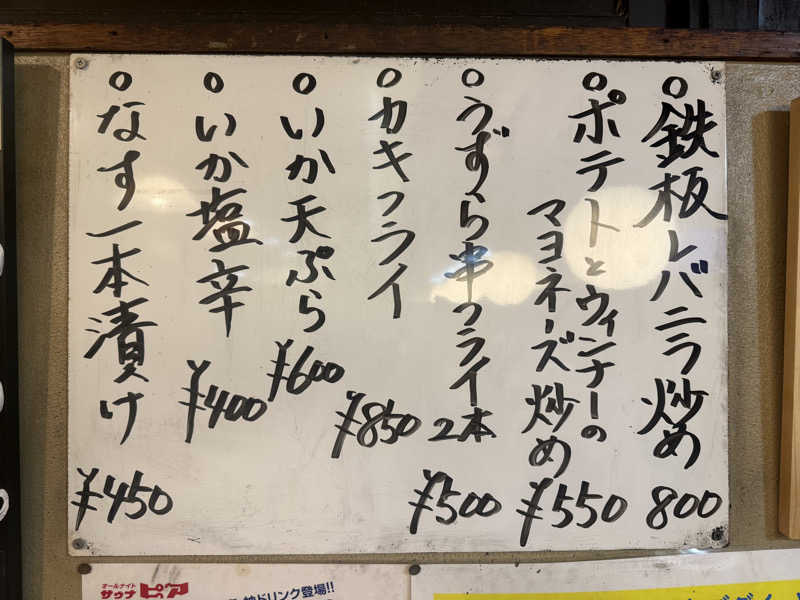 ○鉄板レバニラ炒め 800
○ポテトとウィンナーの
マヨネーズ炒め ¥550
○うずら串フライ 2本 ¥500
○カキフライ ¥850
○いか天ぷら ¥600
○いか塩辛 ¥400
○なす一本漬け ¥450
オールナイト
サウナ ピア
ドリンク登場!!